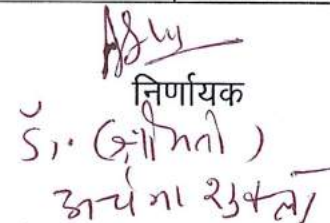 निर्णायक
डॉ. (श्रीमती)
अर्चना शुक्ला